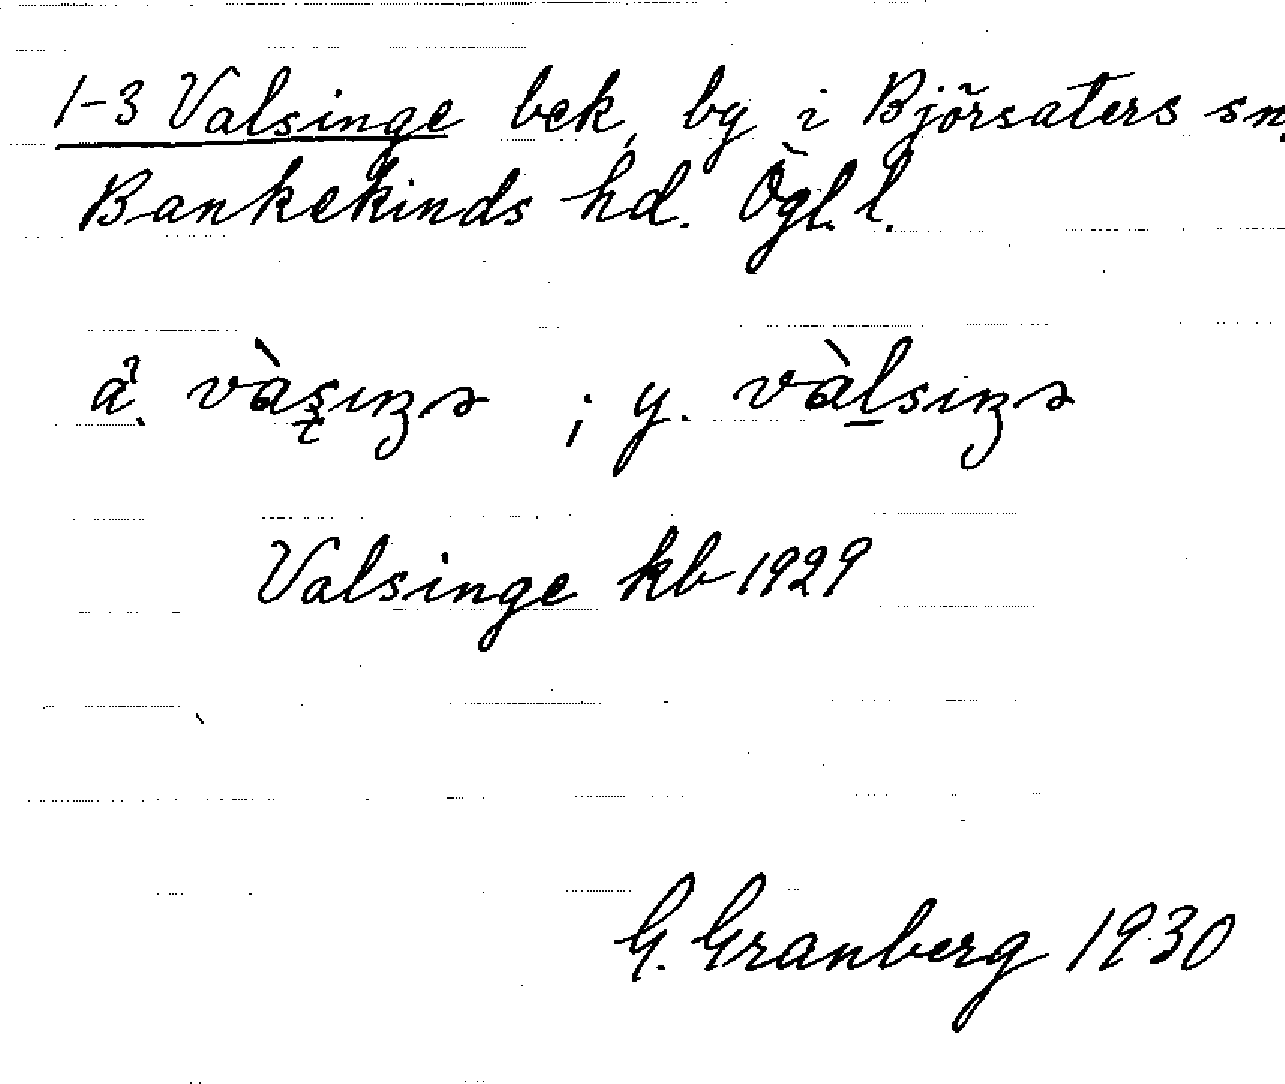 1-3 Valsinge bek, by i Björsäters sn,
Bankekinds hd. Ögl. l.
ä. ; y.
Valsinge kb 1929
G. Granberg 1930